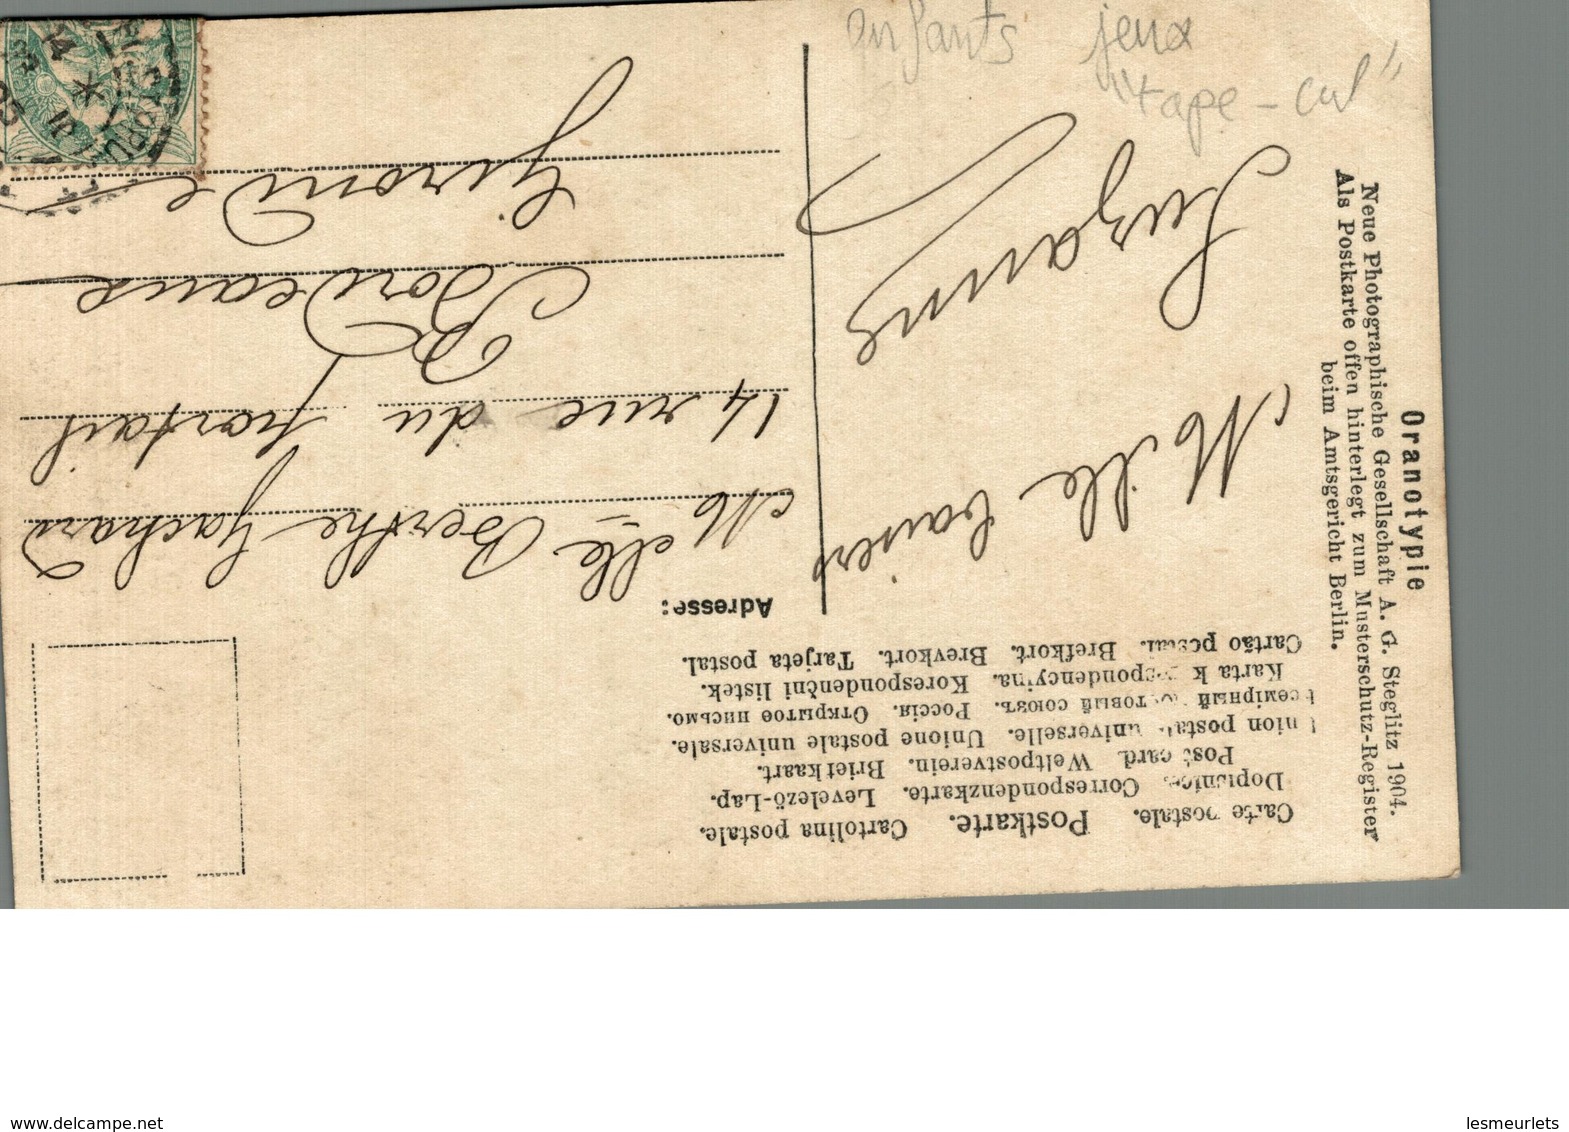 enfants jeux
"tape-cul"
Oranotypie
Neue Photographische Gesellschaft A. G. Steglitz 1904.
Als Postkarte offen hinterlegt zum Musterschutz-Register
beim Amtsgericht Berlin.
Carte postale. Postkarte. Cartolina postale.
Dopisnice. Correspondenzkarte. Levelező-Lap.
Post card. Weltpostverein. Briefkaart.
Union postale universelle. Unione postale universale.
Всемірный почтовый союзъ. Россія. Открытое письмо.
Karta korespondencyjna. Korespondenční listek.
Cartão postal. Brefkort. Brevkort. Tarjeta postal.
Adresse:
Mille baisers
Suzanne
Melle Berthe Gachard
14 rue du portail
Bordeaux
Gironde
www.delcampe.net
lesmeurlets